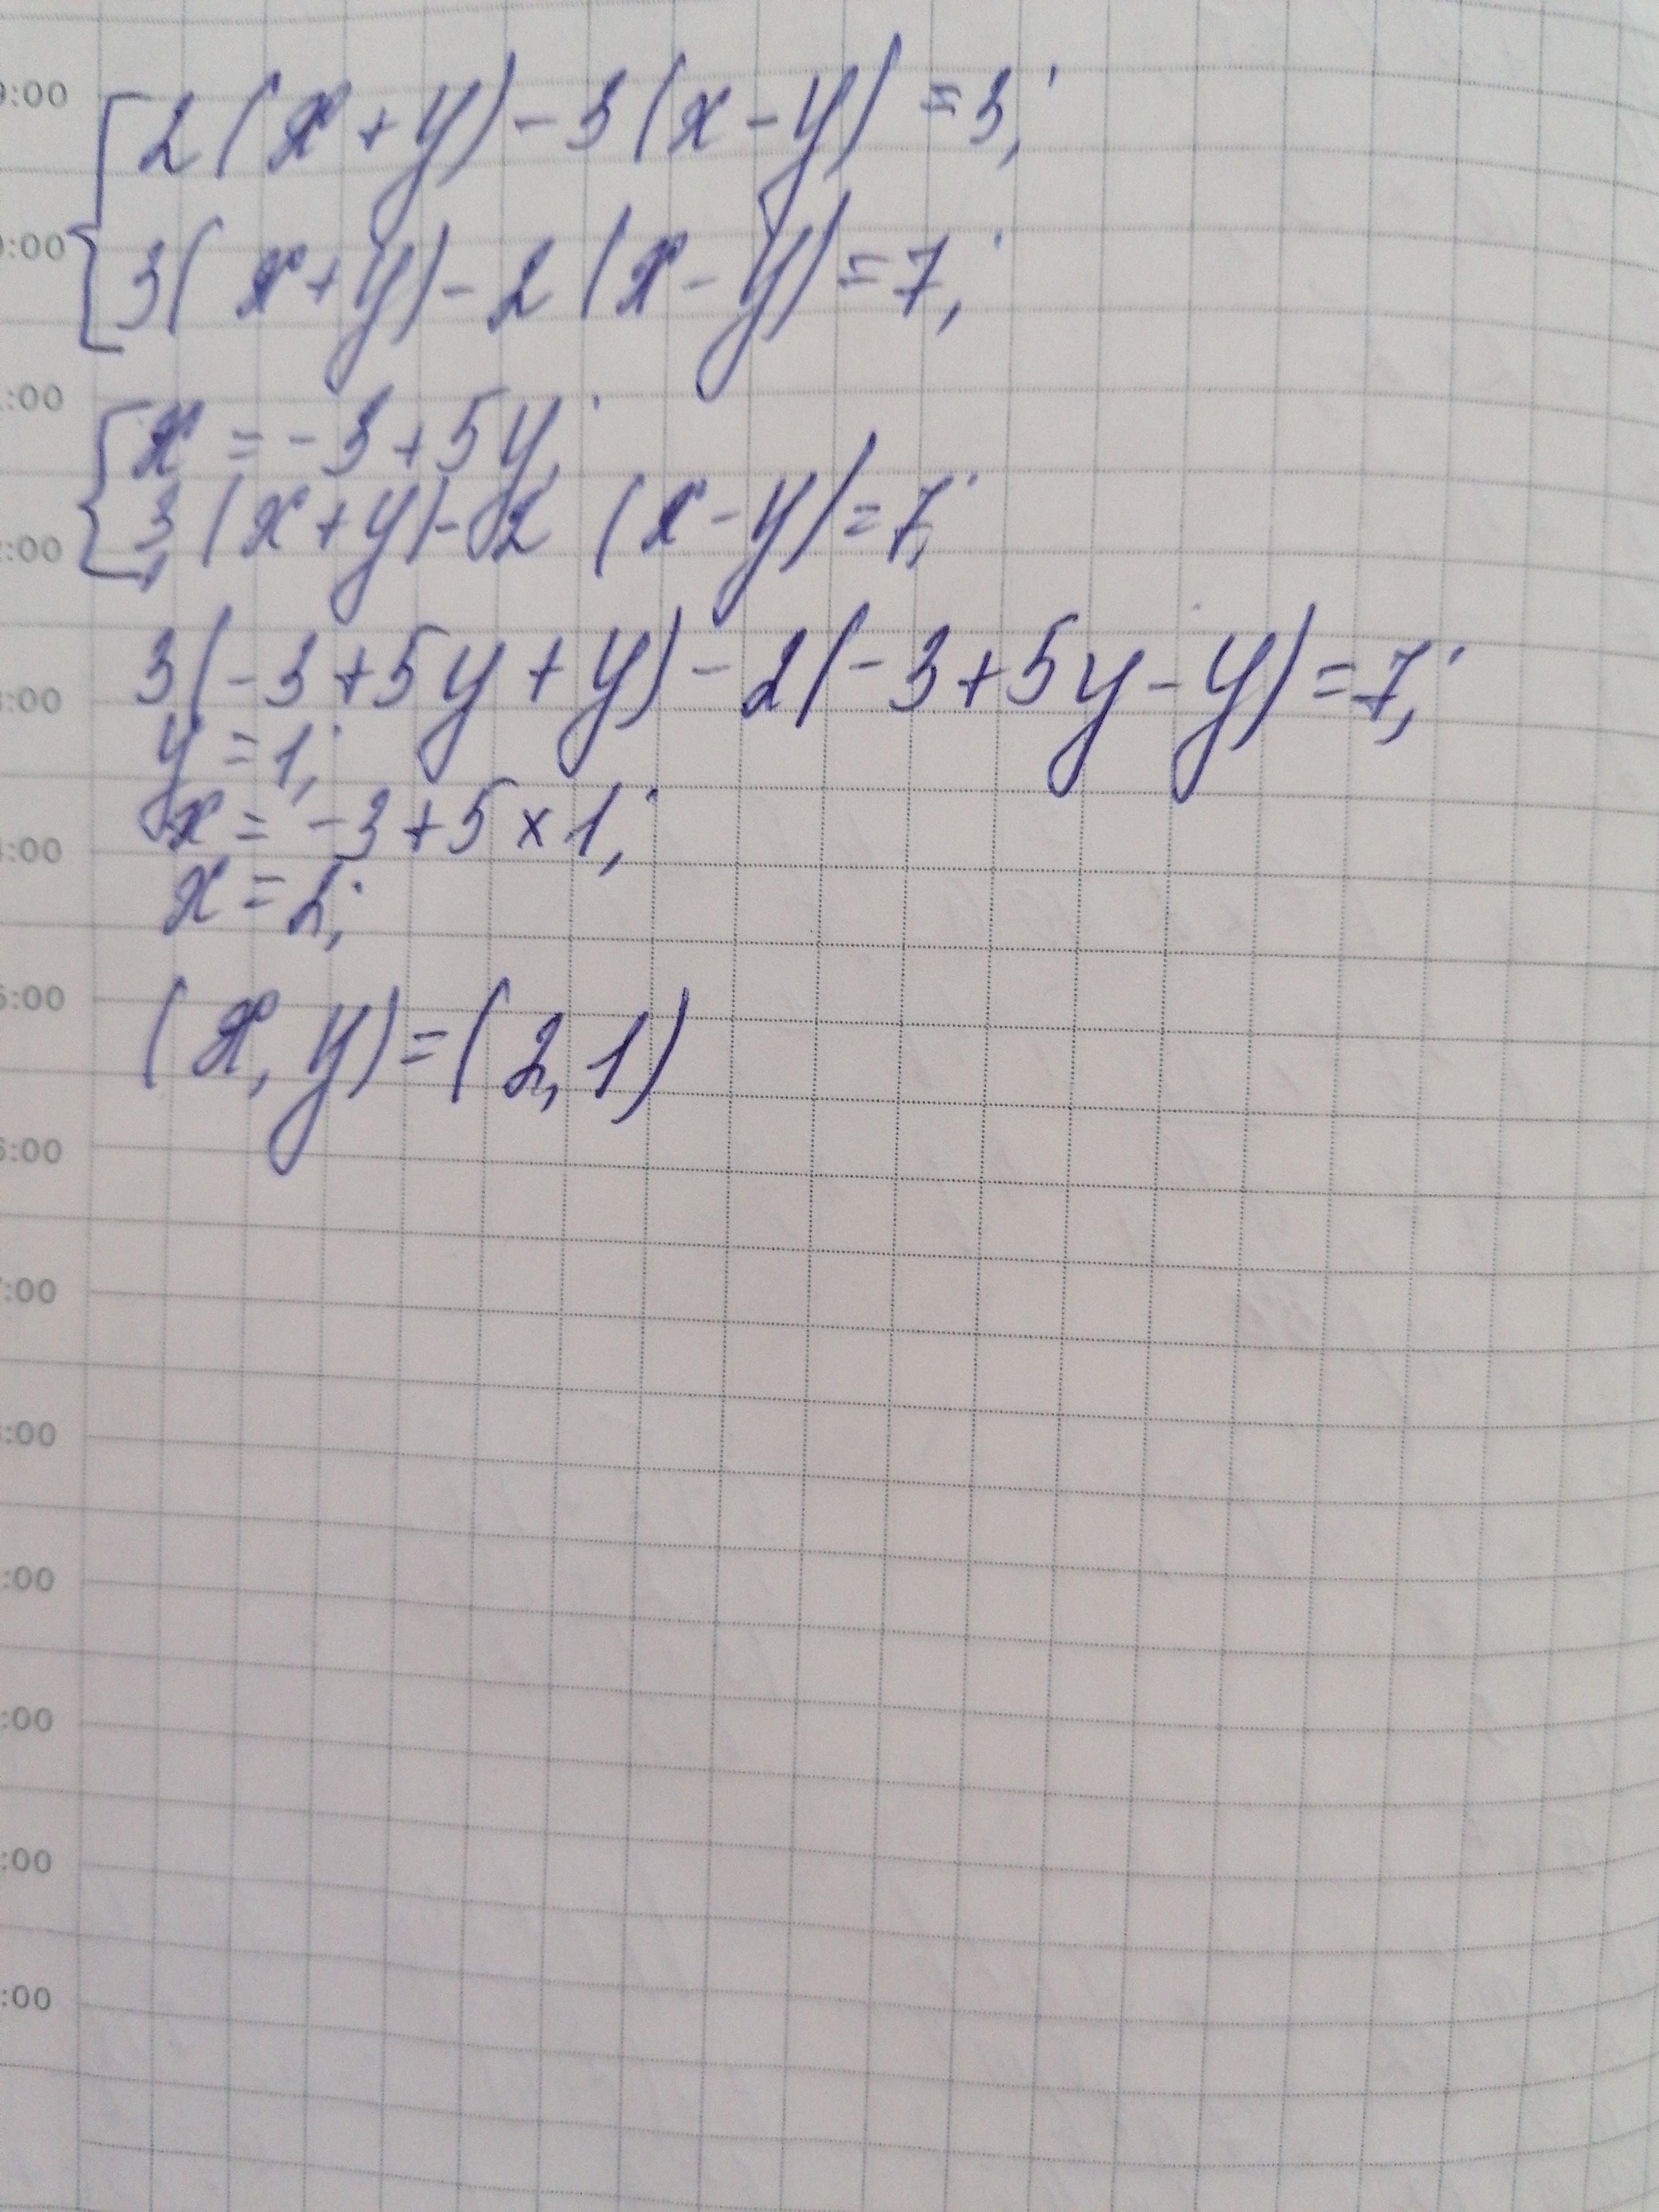 9:00
2(x+y)-3(x-y)=3;
0:00
3(x+y)-2(x-y)=7;
1:00
x=-3+5y;
2:00
3(x+y)-2(x-y)=7;
3(-3+5y+y)-2(-3+5y-y)=7;
3:00
y=1;
x=-3+5×1;
4:00
x=2;
5:00
(x,y)=(2,1)
6:00
7:00
:00
:00
:00
:00
:00